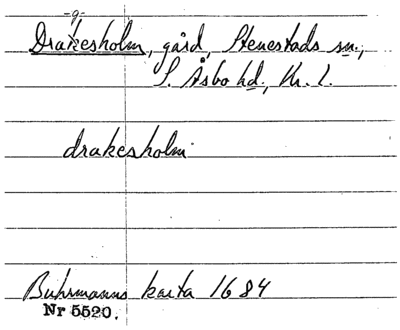 -g-
Drakesholm, gård, Stenestads sn.,
S. Åsbo hd., Kr. l.
drakesholm
Buhrmanns karta 1684
Nr 5520.